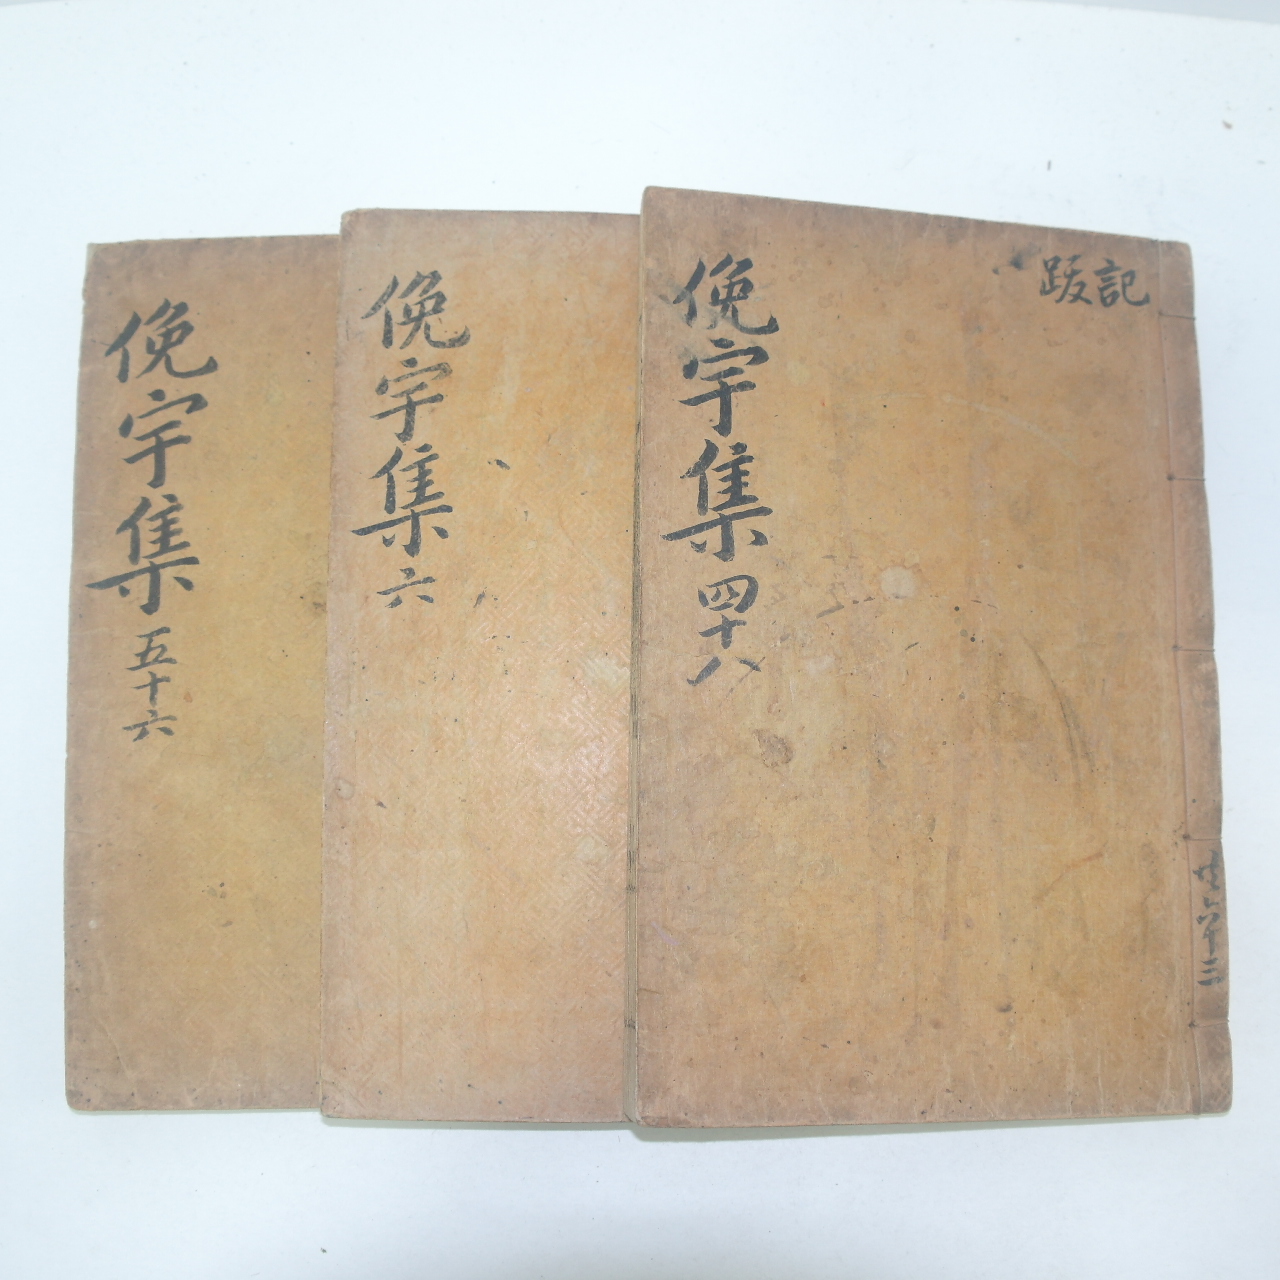 俛宇集 五十六
俛宇集 六
俛宇集 四十八
記跋
共六十三